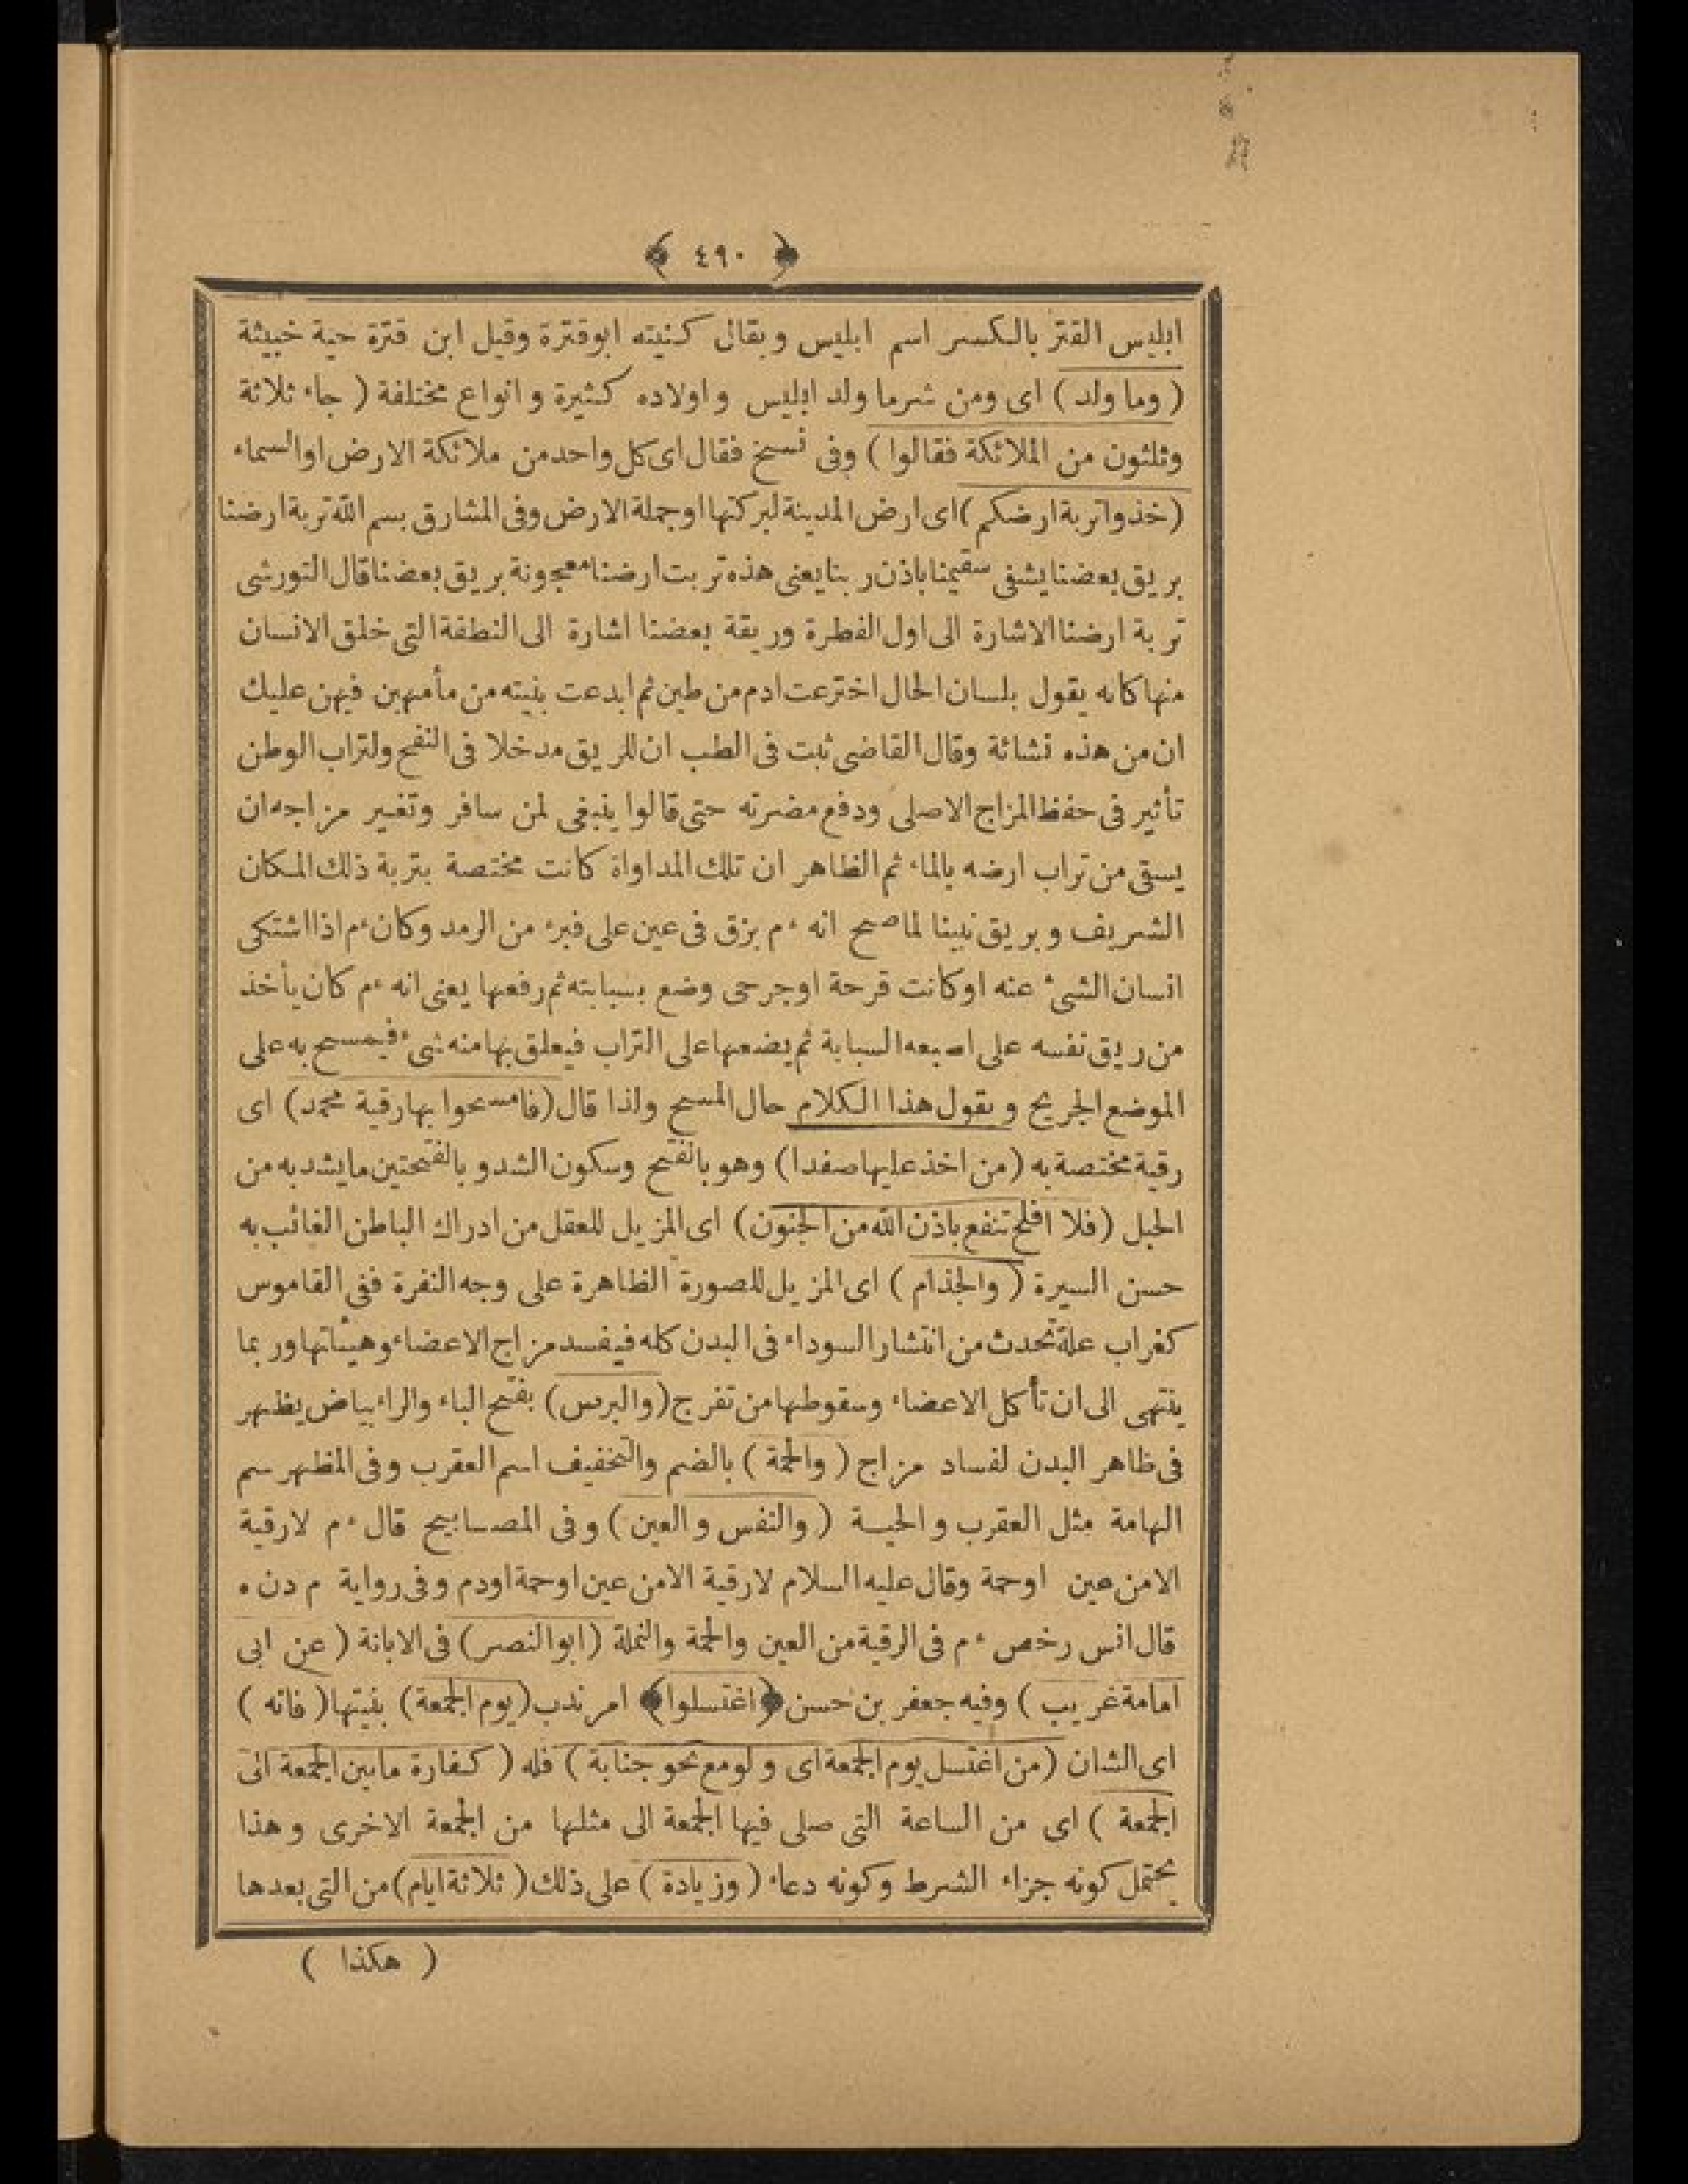 ﴿ ٤٩٠ ﴾
ابليس القتر بالكسر اسم ابليس ويقال كنيته ابوقترة وقيل ابن قترة حية خبيثة
( وما ولد ) اى ومن شرما ولد ابليس واولاده كثيرة وانواع مختلفة ( جاء ثلاثة
وثلثون من الملائكة فقالوا ) وفى نسخ فقال اى كل واحد من ملائكة الارض اوالسماء
( خذوا تربة ارضكم ) اى ارض المدينة لبركتها اوجملة الارض وفى المشارق بسم الله تربة ارضنا
بريق بعضنا يشفى سقيمنا باذن ربنا يعنى هذه تربت ارضنا معجونة بريق بعضنا قال التورشى
تربة ارضنا الاشارة الى اول الفطرة وريقة بعضنا اشارة الى النطفة التى خلق الانسان
منها كانه يقول بلسان الحال اخترعت ادم من طين ثم ابدعت بنيته من مأمهين فيهن عليك
ان من هذه نشائة وقال القاضى ثبت فى الطب ان للريق مدخلا فى النفح ولتراب الوطن
تأثير فى حفظ المزاج الاصلى ودفع مضرته حتى قالوا ينبغى لمن سافر وتغير مزاجه ان
يسقى من تراب ارضه بالماء ثم الظاهر ان تلك المداواة كانت مختصة بتربة ذلك المكان
الشريف وبريق نبينا لما صح انه ءم بزق فى عين على فبرء من الرمد وكان ءم اذا اشتكى
انسان الشىء عنه اوكانت قرحة اوجرحى وضع بسبابته ثم رفعها يعنى انه ءم كان يأخذ
من ريق نفسه على اصبعه السبابة ثم يضعها على التراب فيعلق بها منه شىء فيمسح به على
الموضع الجريح ويقول هذا الكلام حال المسح ولذا قال ( فامسحوا بها رقية محمد ) اى
رقية مختصة به ( من اخذ عليها صفدا ) وهو بالفتح وسكون الشد و بالفتحتين ما يشد به من
الحبل ( فلا افلح تنفع باذن الله من الجنون ) اى المزيل للعقل من ادراك الباطن الغائب به
حسن السيرة ( والجذام ) اى المزيل للصورة الظاهرة على وجه النفرة ففى القاموس
كغراب علة تحدث من انتشار السوداء فى البدن كله فيفسد مزاج الاعضاء وهيئاتها وربما
ينتهى الى ان تأكل الاعضاء وسقوطها من تفرج ( والبرص ) بفتح الباء والراء بياض يظهر
فى ظاهر البدن لفساد مزاج ( والحمة ) بالضم والتخفيف اسم العقرب وفى المظهر سم
الهامة مثل العقرب والحية ( والنفس والعين ) وفى المصابيح قال ءم لارقية
الامن عين اوحمة وقال عليه السلام لارقية الامن عين اوحمة اودم وفى رواية م د ن ه
قال انس رخص ءم فى الرقية من العين والحمة والنملة ( ابوالنصر ) فى الابانة ( عن ابى
امامة غريب ) وفيه جعفر بن حسن ﴿ اغتسلوا ﴾ امر ندب ( يوم الجمعة ) بنيتها ( فانه )
اى الشان ( من اغتسل يوم الجمعة اى ولومع نحو جنابة ) فله ( كفارة مابين الجمعة الى
الجمعة ) اى من الساعة التى صلى فيها الجمعة الى مثلها من الجمعة الاخرى وهذا
يحتمل كونه جزاء الشرط وكونه دعاء ( وزيادة ) على ذلك ( ثلاثة ايام ) من التى بعدها
( هكذا )